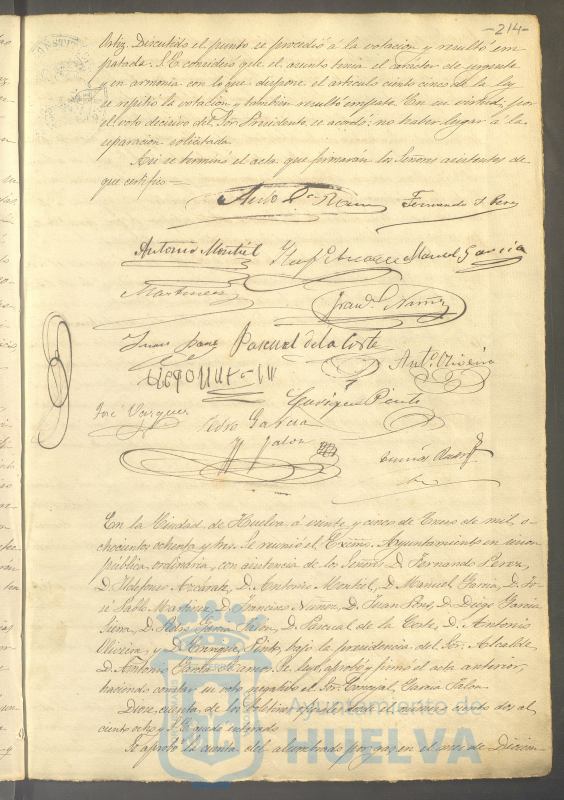 -214-
Ortiz. Discutido el punto se procedió á la votación y resultó em
patada. S. E. considera que el asunto tenía el carácter de urgente
y en armonía con lo que dispone el artículo ciento cinco de la ley
se repitió la votación y también resultó empate. En su virtud, por
el voto decisivo del Sor. Presidente se acordó: no haber lugar á la
reparación solicitada.
Así se terminó el acta que firmarán los Señores asistentes de
que certifico=
Fernando S. Perez
Antonio Montiel Manuel Garcia
Martinez Fran.co Nuñez
Juan Pons Pascual de la Corte
Ant.º Oliveira
Enrique Pinto
José Vazquez Pedro Garcia
Jalon
En la Ciudad de Huelva á veinte y cinco de Enero de mil o-
chocientos ochenta y tres. Se reunió el Excmo. Ayuntamiento en sesión
pública ordinaria, con asistencia de los Señores D. Fernando Perez,
D. Ildefonso Azcárate, D. Antonio Montiel, D. Manuel Garcia, D. Jo-
sé Pablo Martinez, D. Francisco Nuñez, D. Juan Pons, D. Diego Garcia
D. Pedro Garcia Jalon, D. Pascual de la Corte, D. Antonio
Oliveira, y D. Enrique Pinto, bajo la presidencia del Sor. Alcalde
D. Antonio Garcia Ramos. Se leyó, aprobó y firmó el acta anterior,
haciendo constar su voto negativo el Sor. Concejal, Garcia Jalon.
Dióse cuenta de los Boletines oficiales desde el número ciento dos al
ciento ocho y S. E. quedó enterado.
Se aprobó la cuenta del alumbrado por gas en el mes de Diciem-
Ayuntamiento de
HUELVA